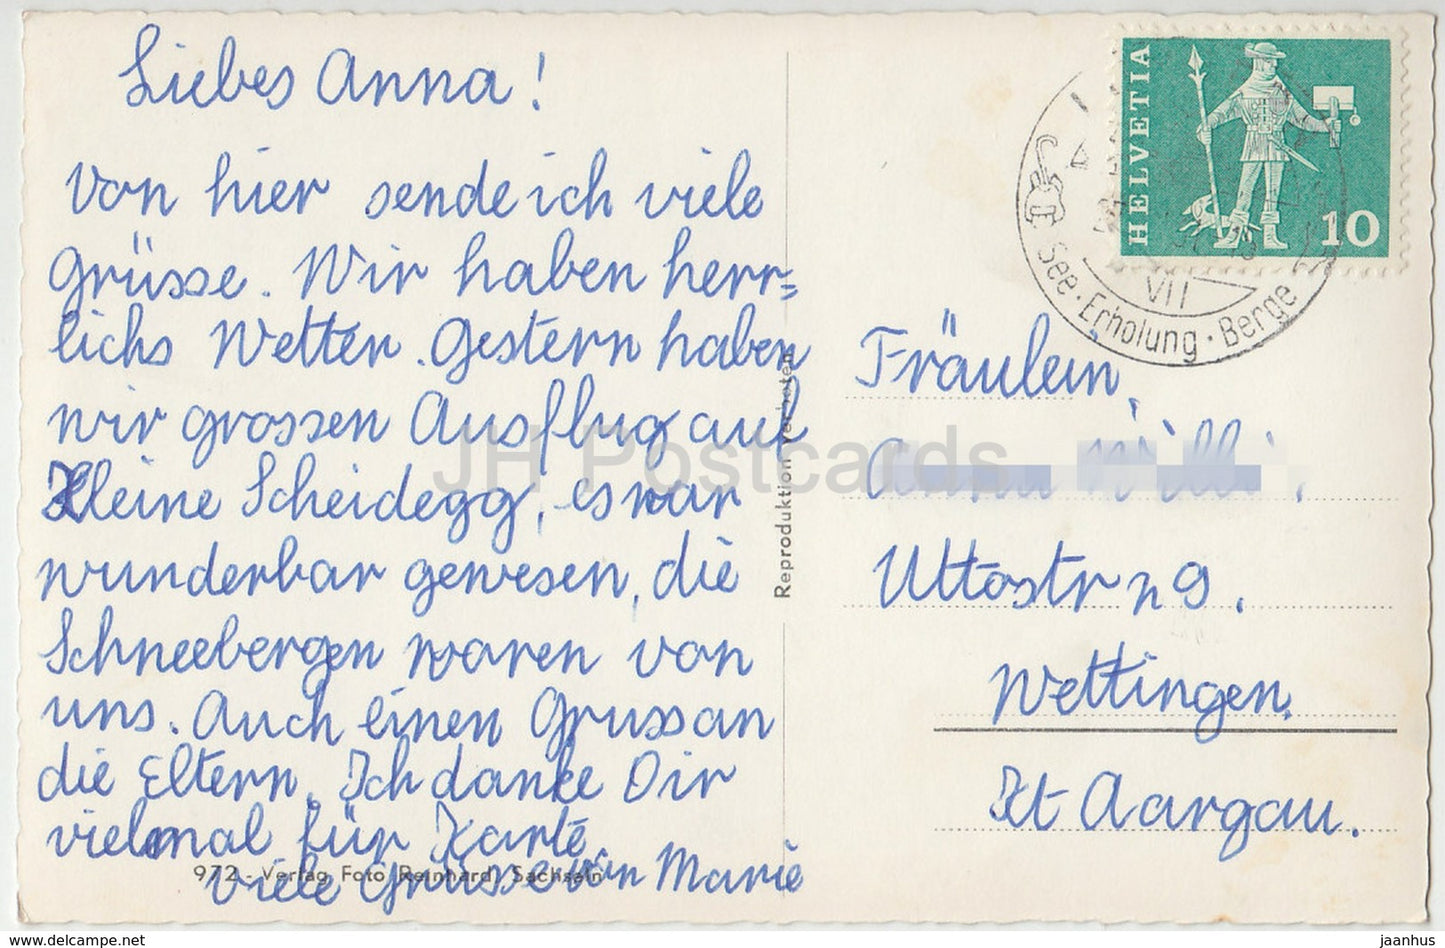 Liebes Anna!
Von hier sende ich viele
Grüsse. Wir haben herr=
lichs Wetter. Gestern haben
wir grossen Ausflug auf
Kleine Scheidegg, es war
wunderbar gewesen, die
Schneebergen waren von
uns. Auch einen Gruss an
die Eltern. Ich danke Dir
vielmal für Karte.
Viele Grüsse von Marie
972 - Verlag Foto Reinhard, Sachseln
Reproduktion verboten
HELVETIA
10
VII
See · Erholung · Berge
Fräulein,
Uttostr 29.
Wettingen.
Kt Aargau.
JH Postcards
www.delcampe.net
jaanhus